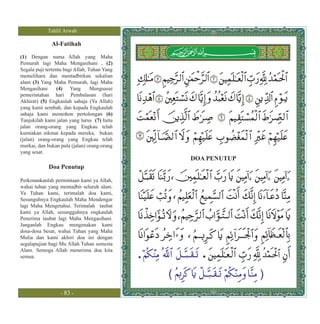 Tahlil Arwah
Al-Fatihah
(1) Dengan nama Allah yang Maha
Pemurah lagi Maha Mengasihani . (2)
Segala puji tertentu bagi Allah, Tuhan Yang
memelihara dan mentadbirkan sekalian
alam (3) Yang Maha Pemurah, lagi Maha
Mengasihani (4) Yang Menguasai
pemerintahan hari Pembalasan (hari
Akhirat) (5) Engkaulah sahaja (Ya Allah)
yang kami sembah, dan kepada Engkaulah
sahaja kami memohon pertolongan (6)
Tunjukilah kami jalan yang lurus (7) Iaitu
jalan orang-orang yang Engkau telah
kurniakan nikmat kepada mereka, bukan
(jalan) orang-orang yang Engkau telah
murkai, dan bukan pula (jalan) orang-orang
yang sesat.
Doa Penutup
Perkenankanlah permintaan kami ya Allah,
wahai tuhan yang mentadbir seluruh alam.
Ya Tuhan kami, terimalah doa kami,
Sesungguhnya Engkaulah Maha Mendengar
lagi Maha Mengetahui. Terimalah taubat
kami ya Allah, sesungguhnya engkaulah
Penerima taubat lagi Maha Mengasihani.
Janganlah Engkau mengenakan kami
dosa-dosa besar, wahai Tuhan yang Maha
Mulia dan kami akhiri doa ini dengan
segalapujian bagi Mu Allah Tuhan semesta
Alam. Semoga Allah menerima doa kita
semua.
- 83 -
بِسْمِ اللَّهِ الرَّحْمَٰنِ الرَّحِيمِ
الْحَمْدُ لِلَّهِ رَبِّ الْعَالَمِينَ ۝ الرَّحْمَٰنِ الرَّحِيمِ ۝ مَالِكِ
يَوْمِ الدِّينِ ۝ إِيَّاكَ نَعْبُدُ وَإِيَّاكَ نَسْتَعِينُ ۝ اهْدِنَا
الصِّرَاطَ الْمُسْتَقِيمَ ۝ صِرَاطَ الَّذِينَ أَنْعَمْتَ
عَلَيْهِمْ غَيْرِ الْمَغْضُوبِ عَلَيْهِمْ وَلَا الضَّالِّينَ ۝
DOA PENUTUP
آمِينَ، آمِينَ، آمِينَ، يَا رَبَّ الْعَالَمِينَ، رَبَّنَا تَقَبَّلْ
مِنَّا دُعَاءَنَا إِنَّكَ أَنْتَ السَّمِيعُ الْعَلِيمُ، وَتُبْ عَلَيْنَا
يَا مَوْلَانَا إِنَّكَ أَنْتَ التَّوَّابُ الرَّحِيمُ، وَلَا تُؤَاخِذْنَا
بِالْعَظَائِمِ وَالْجَرَائِمِ يَا كَرِيمُ، وَآخِرُ دَعْوَانَا
أَنِ الْحَمْدُ لِلَّهِ رَبِّ الْعَالَمِينَ. تَقَبَّلَ اللَّهُ مِنْكُمْ.
( تَقَبَّلْ مِنَّا وَمِنْكُمْ يَا كَرِيمُ )